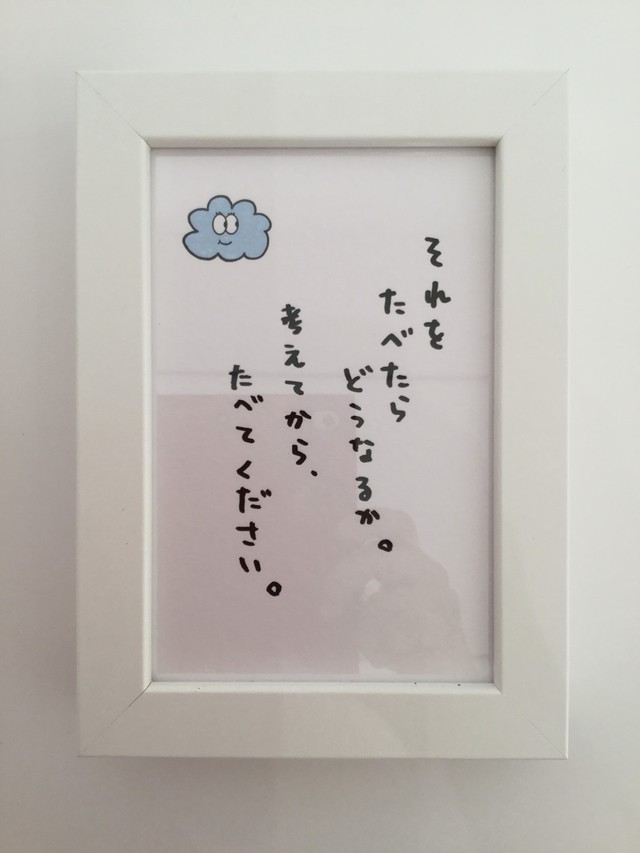 それを
たべたら
どうなるか。
考えてから、
たべてください。